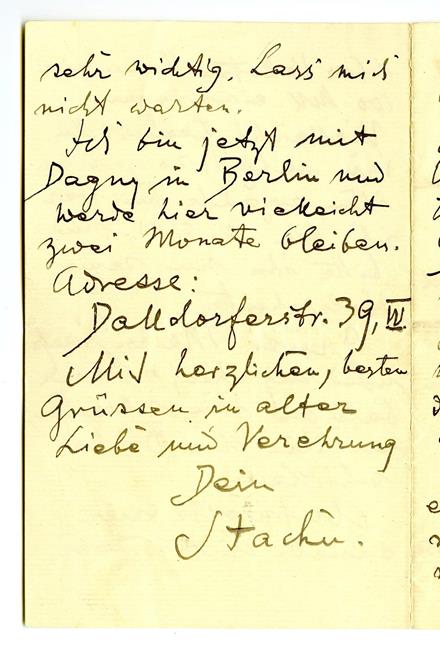 sehr wichtig. Lass mich
nicht warten.
Ich bin jetzt mit
Dagny in Berlin und
werde hier vielleicht
zwei Monate bleiben.
Adresse:
Dalldorferstr. 39, IV
Mit herzlichen, besten
Grüssen in alter
Liebe und Verehrung
Dein
Stachu.